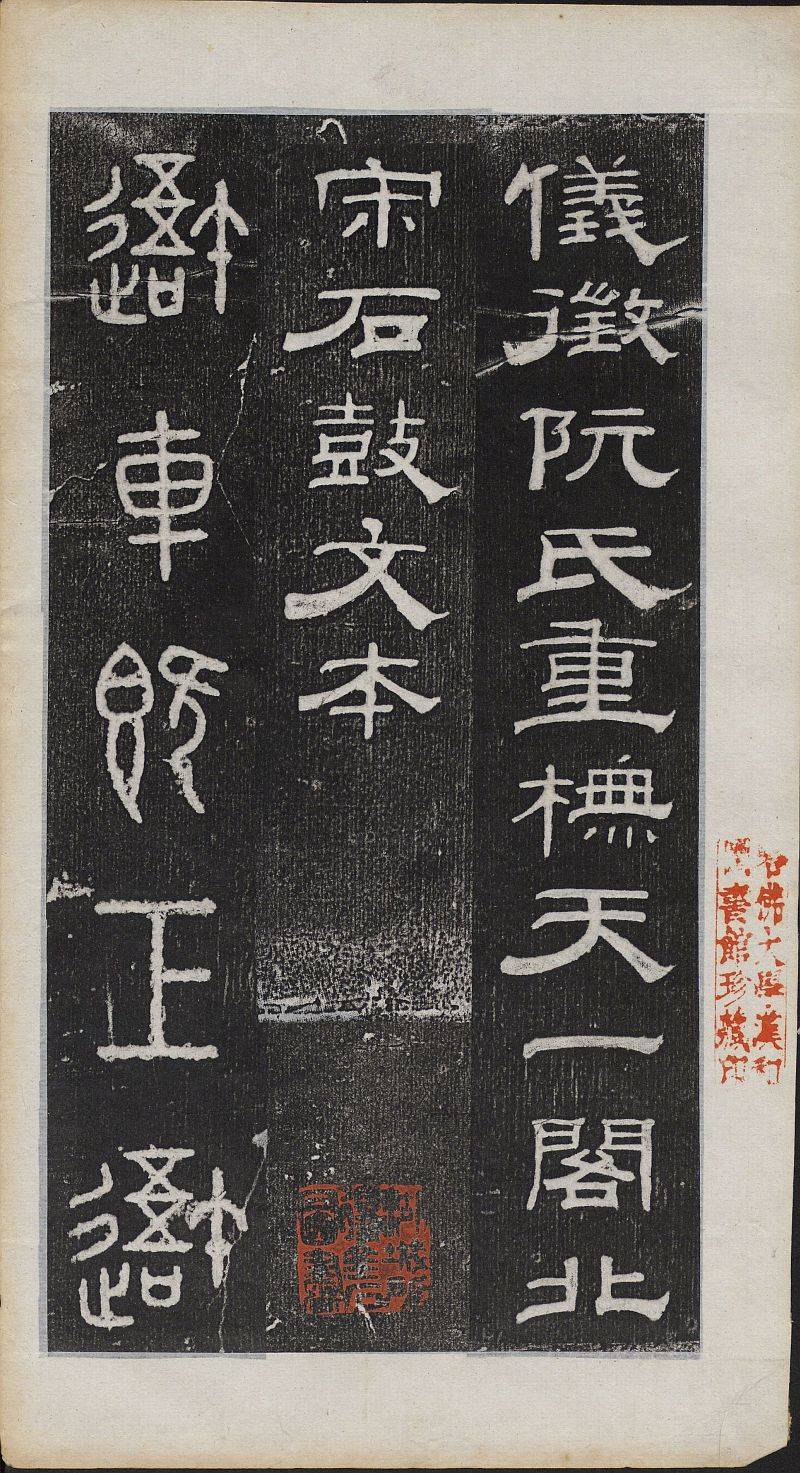 儀徵阮氏重橅天一閣北
宋石鼓文本
車既工
哈佛大學漢和
圖書館珍藏印